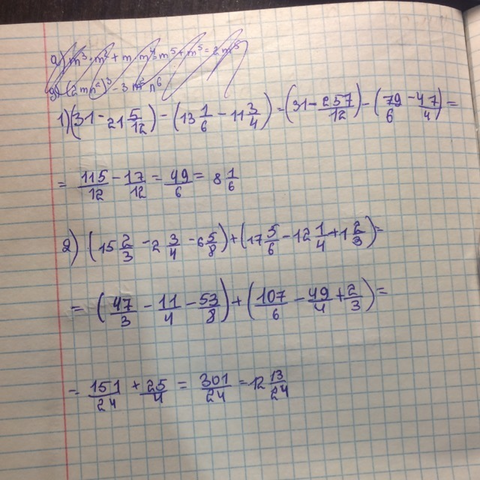 а) m³·m² + m · m⁴ = m⁵ + m⁵ = 2m⁵
1) (31 - 21 5/12) - (13 1/6 - 11 3/4) = (31 - 257/12) - (79/6 - 47/4) =
= 115/12 - 17/12 = 49/6 = 8 1/6
2) (15 2/3 - 2 3/4 - 6 5/8) + (17 5/6 - 12 1/4 + 1 2/3) =
= (47/3 - 11/4 - 53/8) + (107/6 - 49/4 + 2/3) =
= 151/24 + 25/4 = 301/24 = 12 13/24